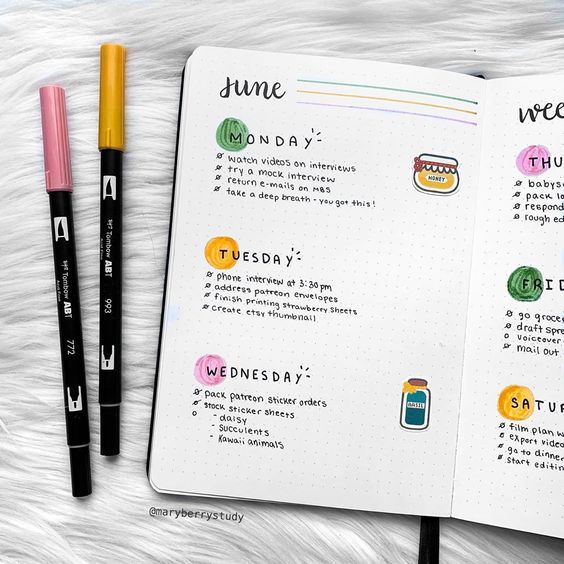 June
MONDAY
watch videos on interviews
try a mock interview
return e-mails on MBS
take a deep breath - you got this!
HONEY
TUESDAY
phone interview at 3:30 pm
address patreon envelopes
finish printing strawberry sheets
create etsy thumbnail
WEDNESDAY
pack patreon sticker orders
stock sticker sheets
- daisy
- succulents
- Kawaii animals
BASIL
Wee
THU
babys
pack lo
respond
rough ed
FRID
go groce
draft spre
voiceover
mail out
SATUR
film plan w
export video
go to dinner
start editin
Tombow ABT
772
Tombow ABT
993
@maryberrystudy